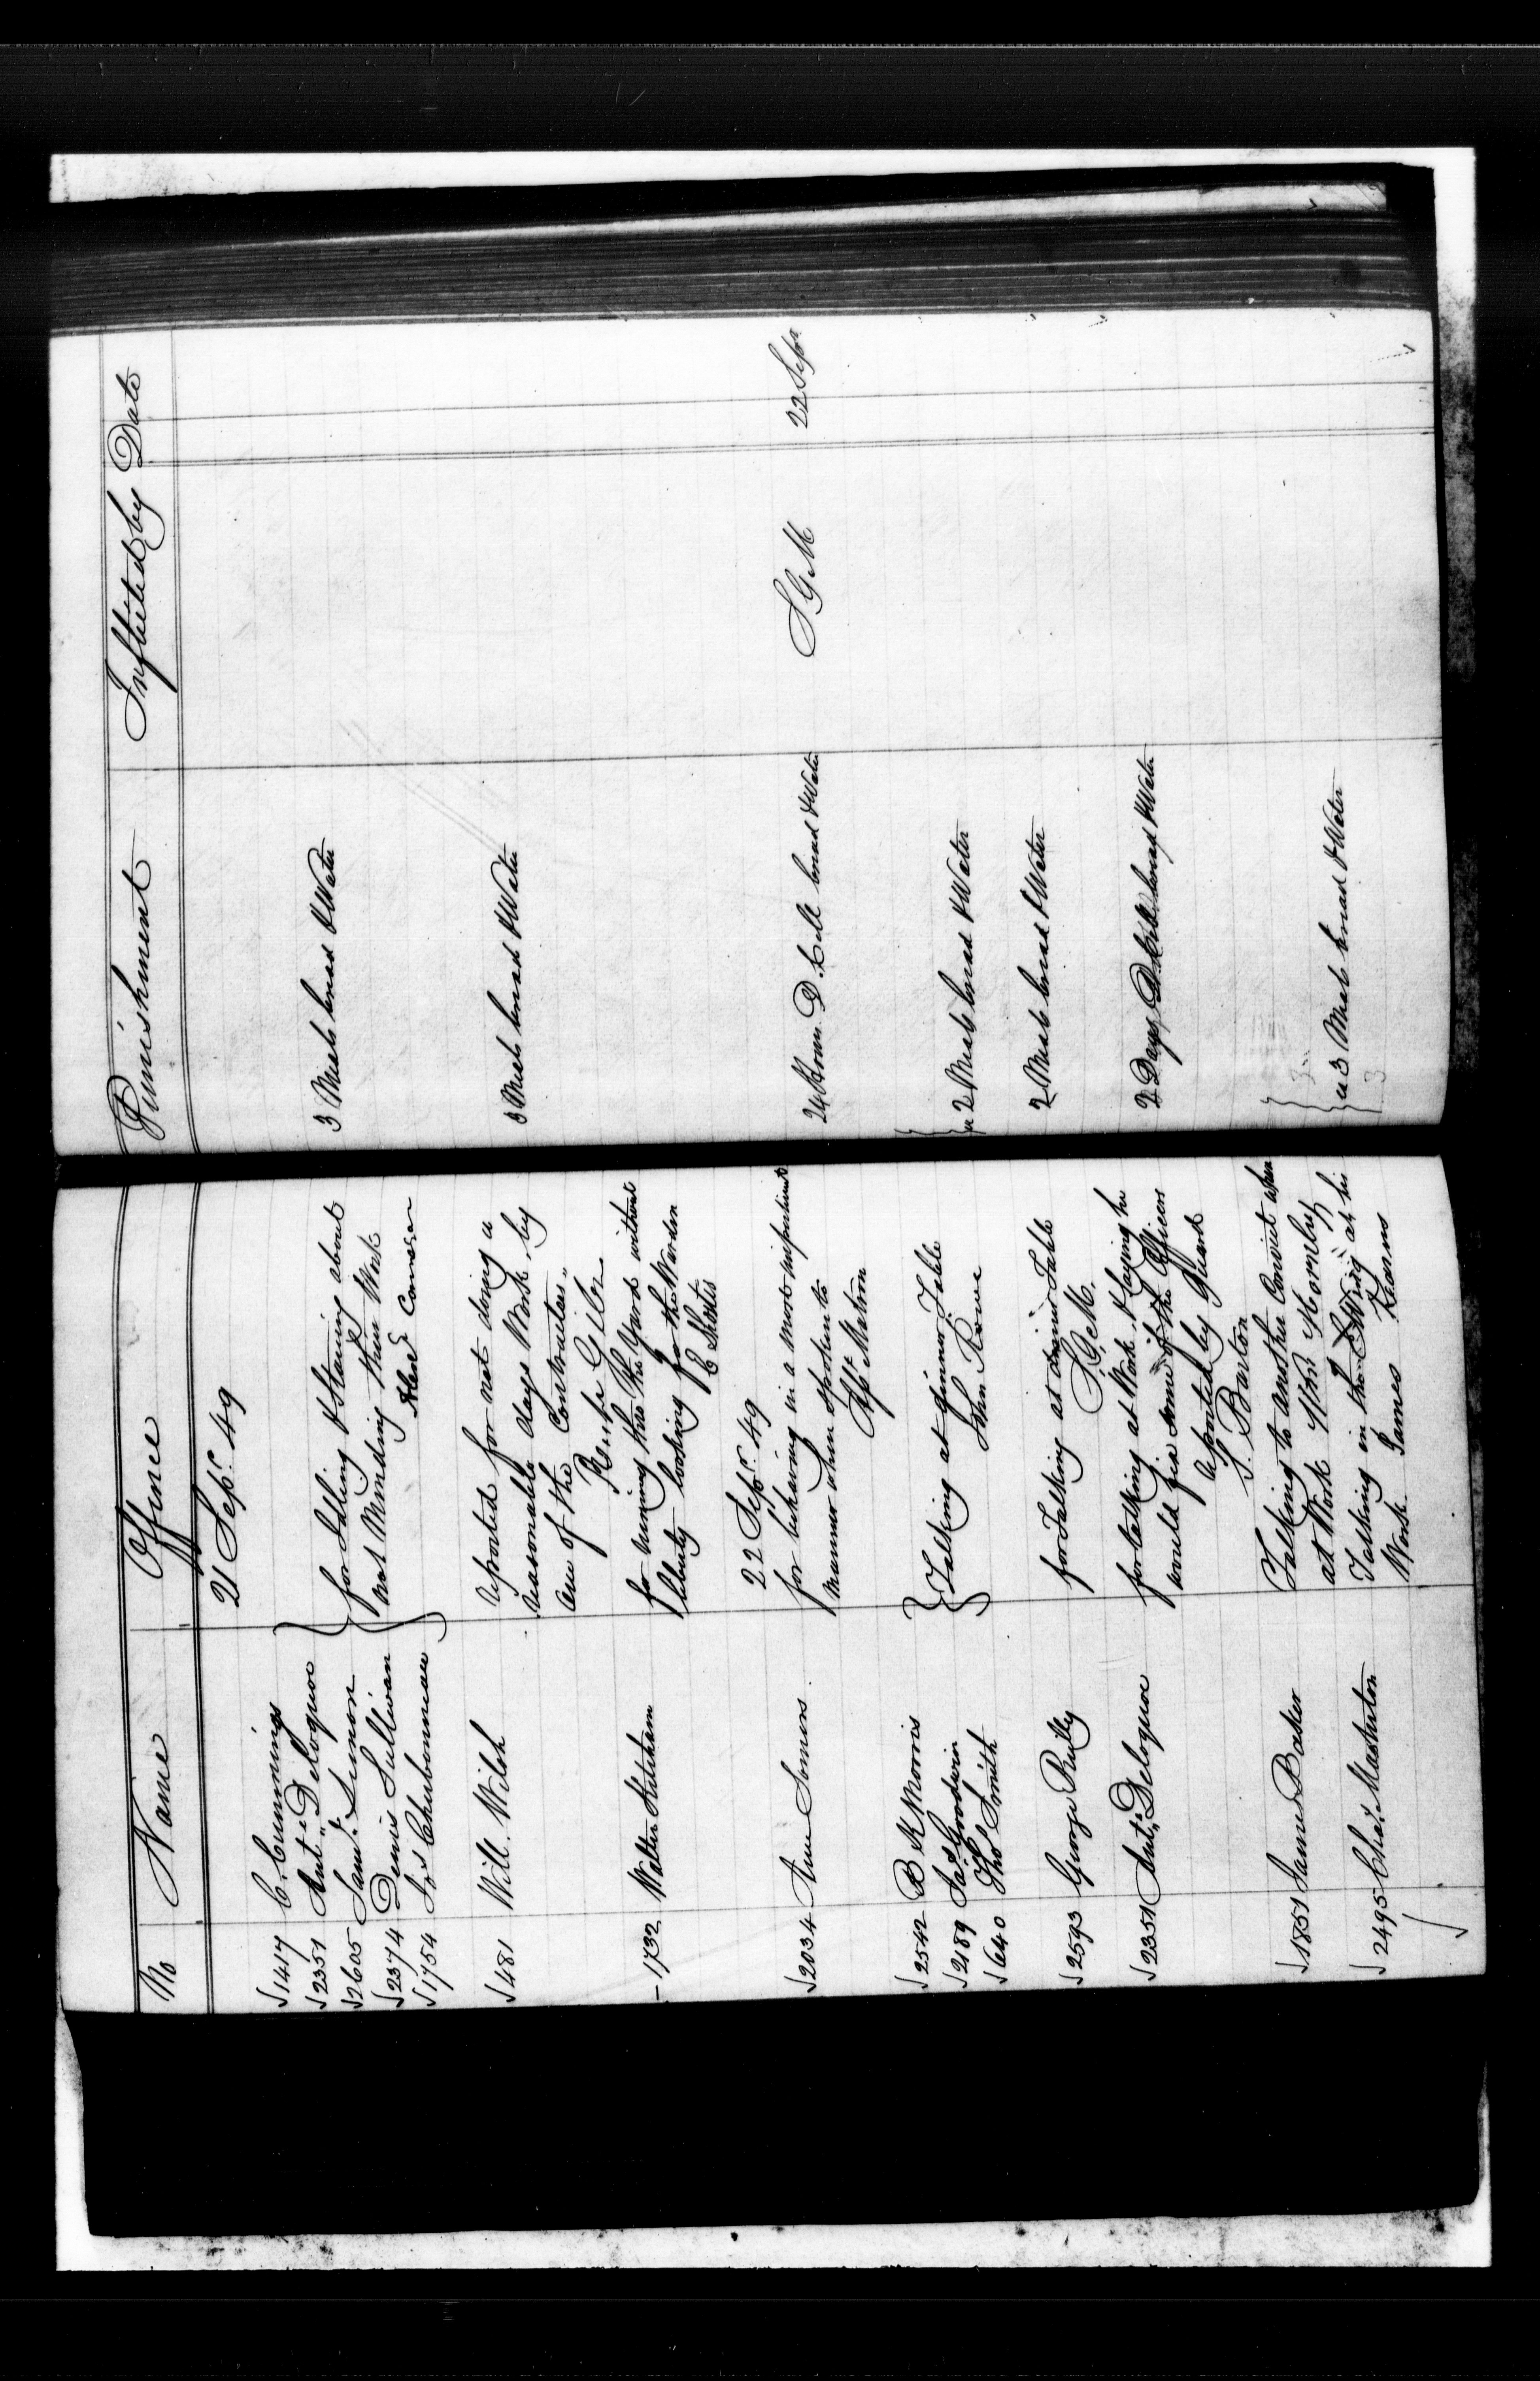 No Name Offence Punishment Inflicted by Date
21 Sepr. 49
1417 C. Cummings
2351 Ant. Deloquoe for Talking & Staring about 3 Meals bread & Water
2605 Saml. Lemon not Minding their Work
2374 Denis Sullivan
1754 Jos Charbonneau
481 Will. Welsh reported for not doing a 3 Meals bread & Water
reasonable days Work by
one of the Contractors
for running thro the Yard without
1732 Walter liberty looking for the Warden
22 Sepr. 49
2034 Ann Somers for behaving in a most impertinent 24 Hours D. Cell bread & Water S G M 22 Sepr.
manner when spoken to
Matron
2542 B K Morris
2189 Jas. Goodwin Talking at dinner Table ea 2 Meals bread & Water
640 Thos Smith John Rowe
2593 George Reilly for Talking at dinner Table 2 Meals bread & Water
S. G. M.
2351 Ant. Deloquoe for talking at Work & saying he 2 Days D. Cell bread & Water
would some of the Officers
reported by Guard
S. Barton
1851 James Baker Talking to another Convict when 3
at Work Wm. Hornby
ea 3 Meals bread & Water
2495 Chas. Masterton Talking in the Wing at his 3
Work James Kearns